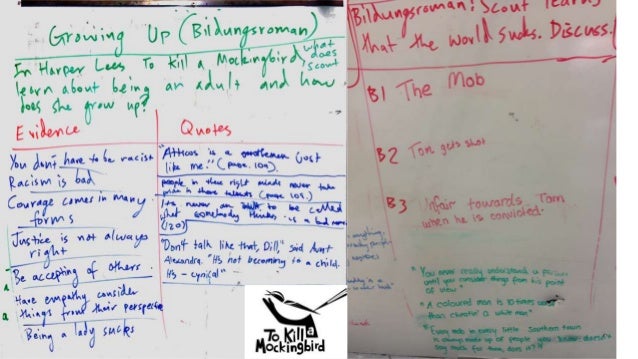 Growing Up (Bildungsroman)
In Harper Lees To Kill a Mockingbird, what does scout
learn about being an adult and how
does she grow up?
Evidence
You don't have to be racist
Racism is bad
Courage comes in many
forms
Justice is not always
right
Be accepting of others
Have empathy consider
things from their perspective
Being a lady sucks
Quotes
"Atticus is a gentleman Just
like me." (
people in their right minds never take
pride in their talents (
Its never an to be called
what somebody thinks is a bad name
(120)
"Don't talk like that, Dill," said Aunt
Alexandra. "Its not becoming to a child.
Its - cynical"
To Kill a
Mockingbird
Bildungsroman: Scout learns
that the world sucks. Discuss.
B1 The Mob
B2 Tom gets shot
B3 Unfair towards Tom
when he is convicted.
"You never really understand a person
until you consider things from his point
of view"
"A coloured man is 10 times worse
than a white man"
"Every mob in every little Southern town
is always made up of people you know - doesn't
say much for them, does it?"